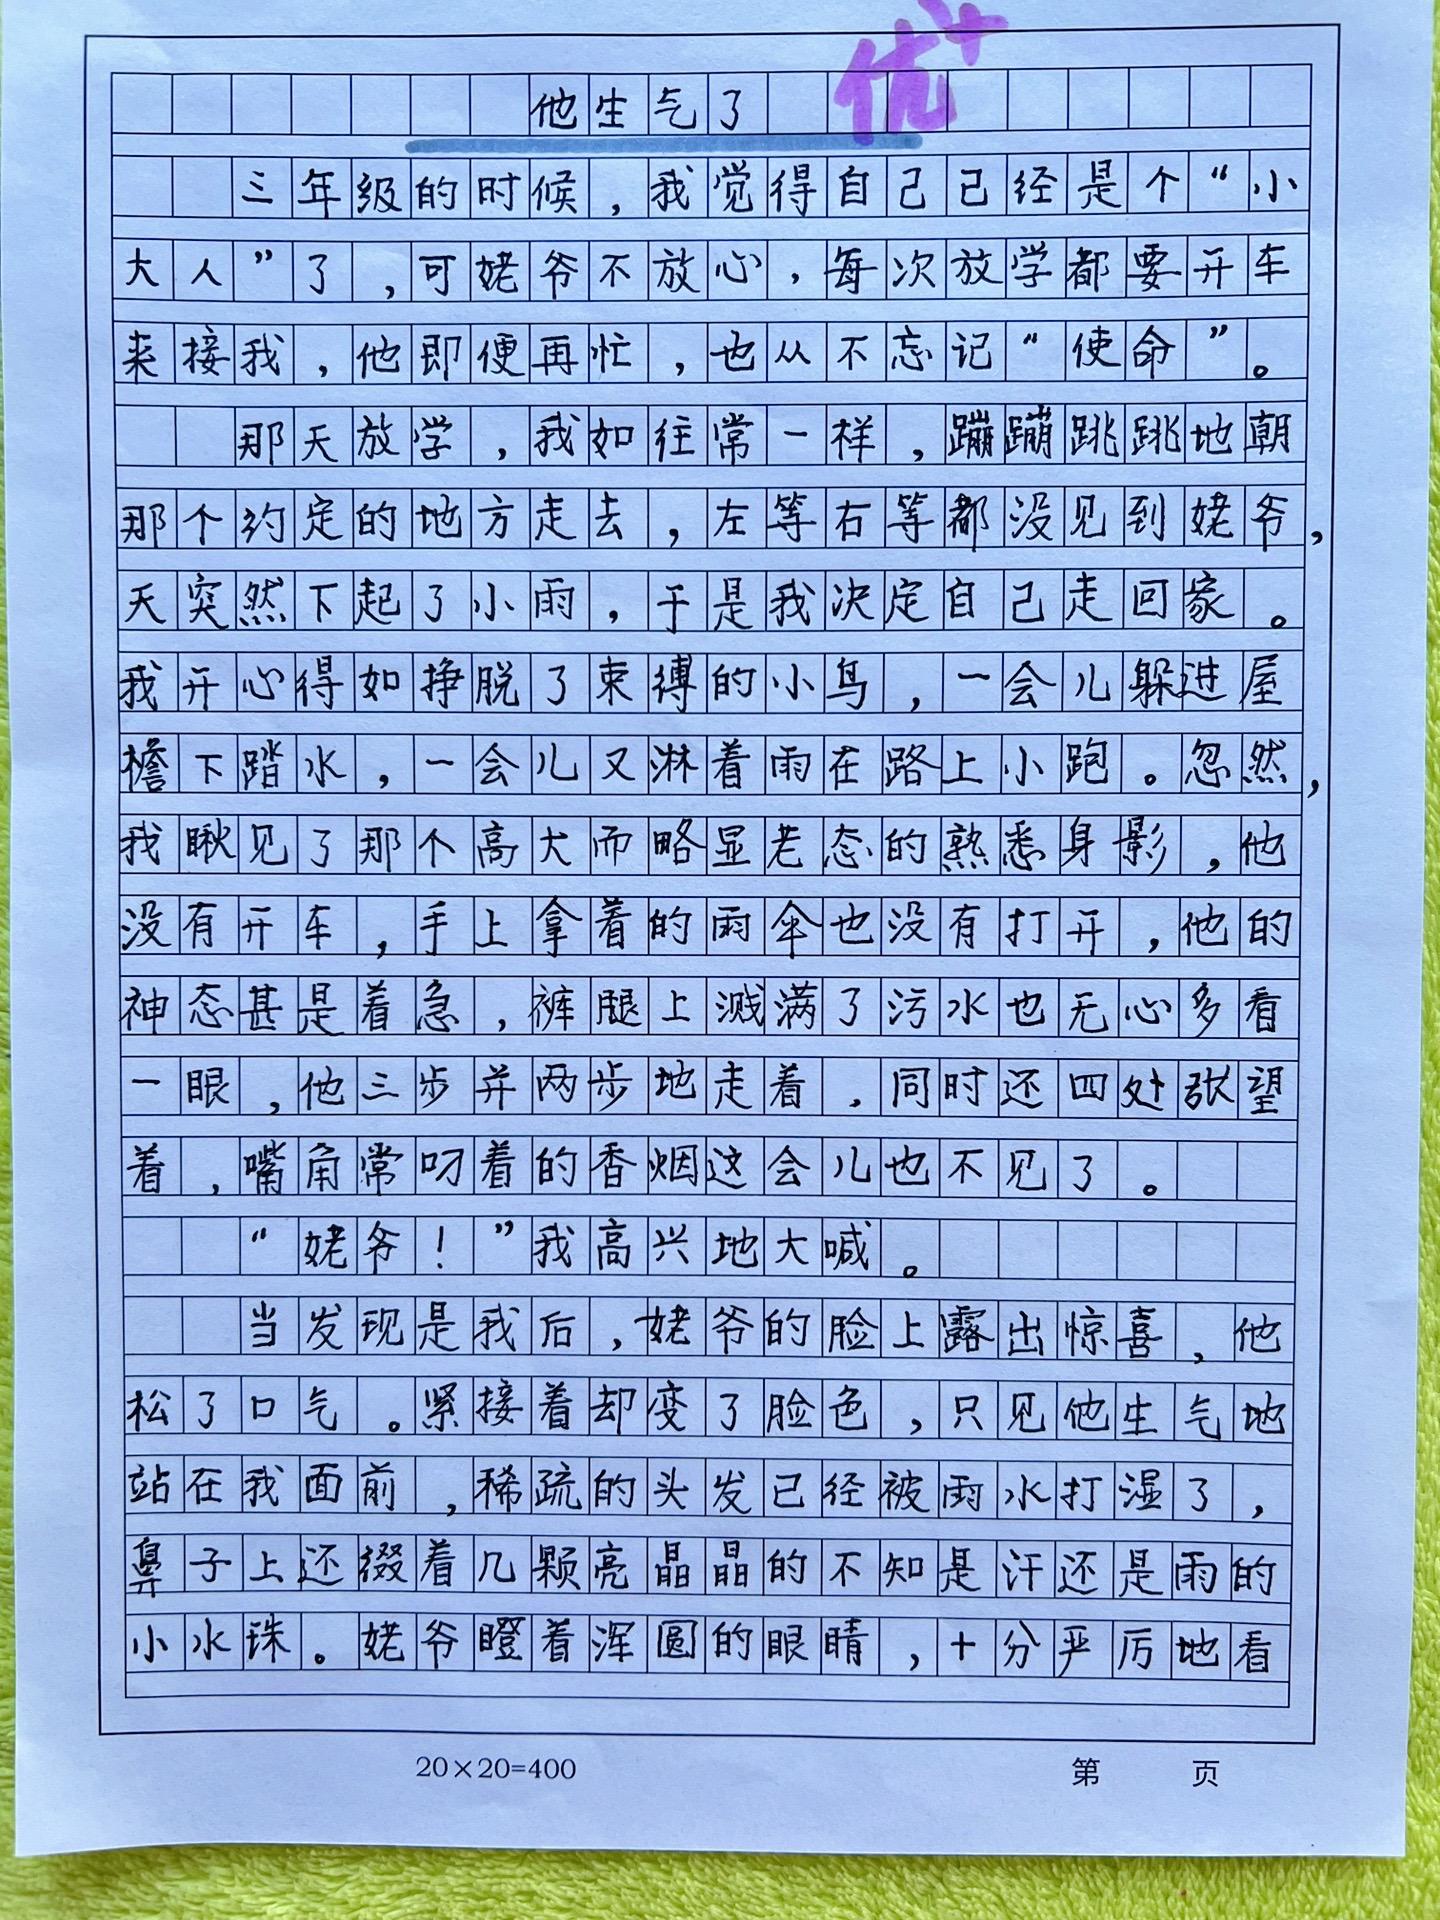 他生气了
优+
三年级的时候，我觉得自己已经是个“小
大人”了，可姥爷不放心，每次放学都要开车
来接我，他即便再忙，也从不忘记“使命”。
那天放学，我如往常一样，蹦蹦跳跳地朝
那个约定的地方走去，左等右等都没见到姥爷，
天突然下起了小雨，于是我决定自己走回家。
我开心得如挣脱了束缚的小鸟，一会儿躲进屋
檐下踏水，一会儿又淋着雨在路上小跑。忽然，
我瞅见了那个高大而略显老态的熟悉身影，他
没有开车，手上拿着的雨伞也没有打开，他的
神态甚是着急，裤腿上溅满了污水也无心多看
一眼，他三步并两步地走着，同时还四处张望
着，嘴角常叼着的香烟这会儿也不见了。
“姥爷！”我高兴地大喊。
当发现是我后，姥爷的脸上露出惊喜，他
松了口气。紧接着却变了脸色，只见他生气地
站在我面前，稀疏的头发已经被雨水打湿了，
鼻子上还缀着几颗亮晶晶的不知是汗还是雨的
小水珠。姥爷瞪着浑圆的眼睛，十分严厉地看
20×20=400
第 页